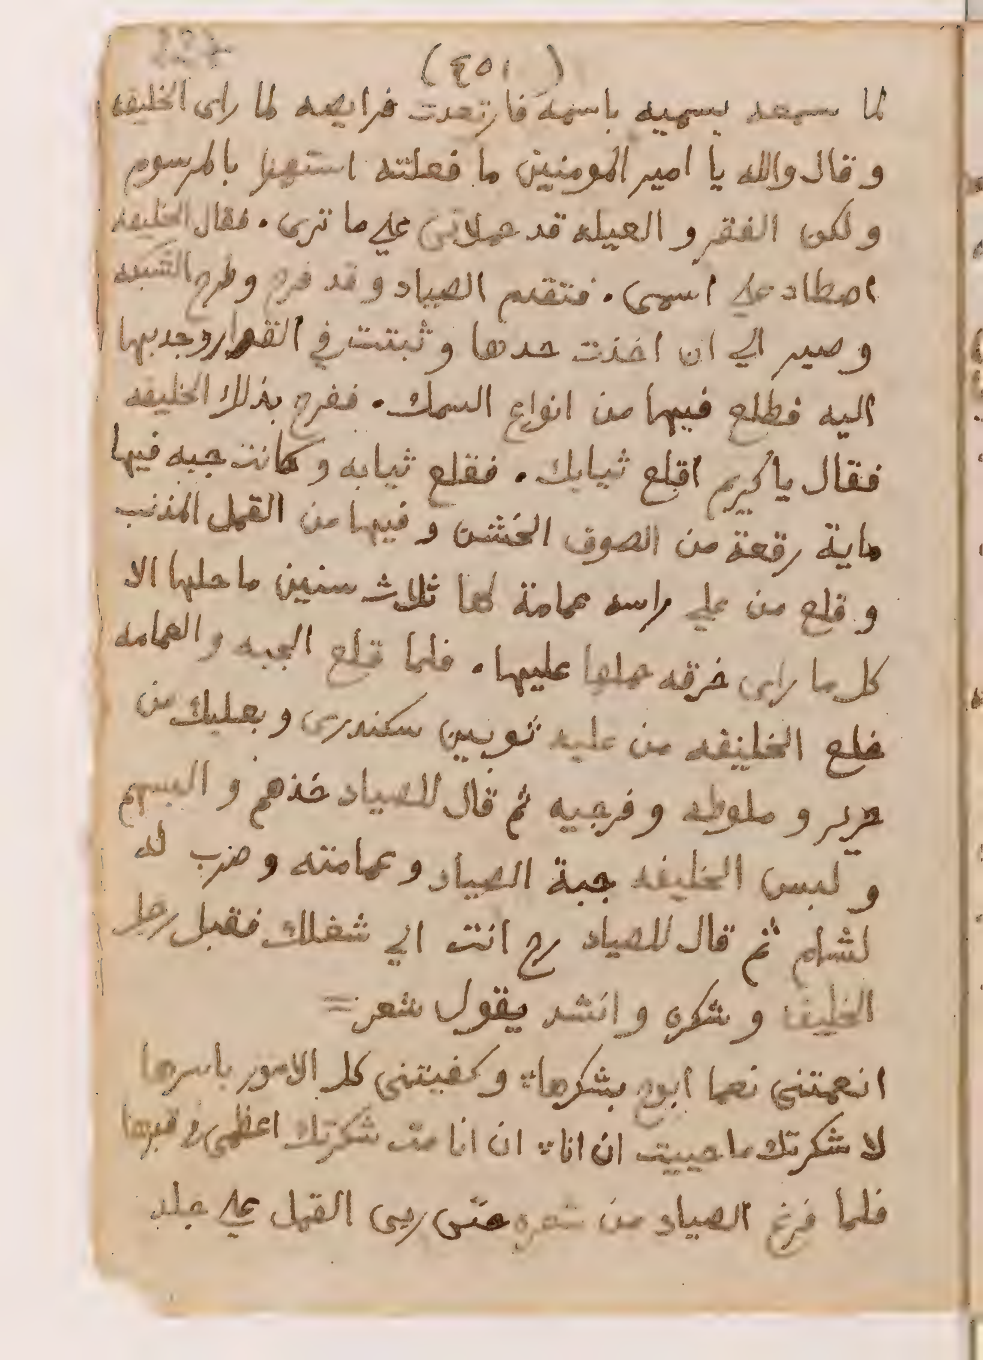 (٤٥١)
لما سمعه يسميه باسمه فارتعدت فرايصه لما راى الخليفه
و قال والله يا امير المومنين ما فعلته استهزا بالمرسوم
و لكن الفقر و العيله قد حملاني علي ما ترى . فقال الخليفه
اصطاد علي اسمى . فتقدم الصياد و قد فرح و طرح الشبكه
و صبر الي ان اخذت حدها و ثبتت في القرار و جدبها
اليه فطلع فيها من انواع السمك . ففرح بذلك الخليفه
فقال يا كريم اقلع ثيابك . فقلع ثيابه و كانت جبه فيها
ماية رقعة من الصوف الخشن و فيها من القمل المذنب
و قلع من علي راسه عمامة لها ثلاث سنين ما حلها الا
كل ما راى خرقه حملها عليها . فلما قلع الجبه و العمامه
خلع الخليفه من عليه ثوبين سكندرى و بعلبك من
حرير و ملوطه و فرجيه ثم قال للصياد خذهم و البسهم
و لبس الخليفه جبة الصياد و عمامته و ضرب له
لشام ثم قال للصياد رح انت الي شغلك فقبل رجل
الخليفه و شكره و انشد يقول شعر =
انعمتنى نعما ابوح بشكرها ؞ و كفيتنى كل الامور باسرها
لا شكرتك ما حييت ان انا ؞ ان انا مت شكرتك اعظمى و قبرها
فلما فرغ الصياد من شعره حتى رعى القمل علي جلد